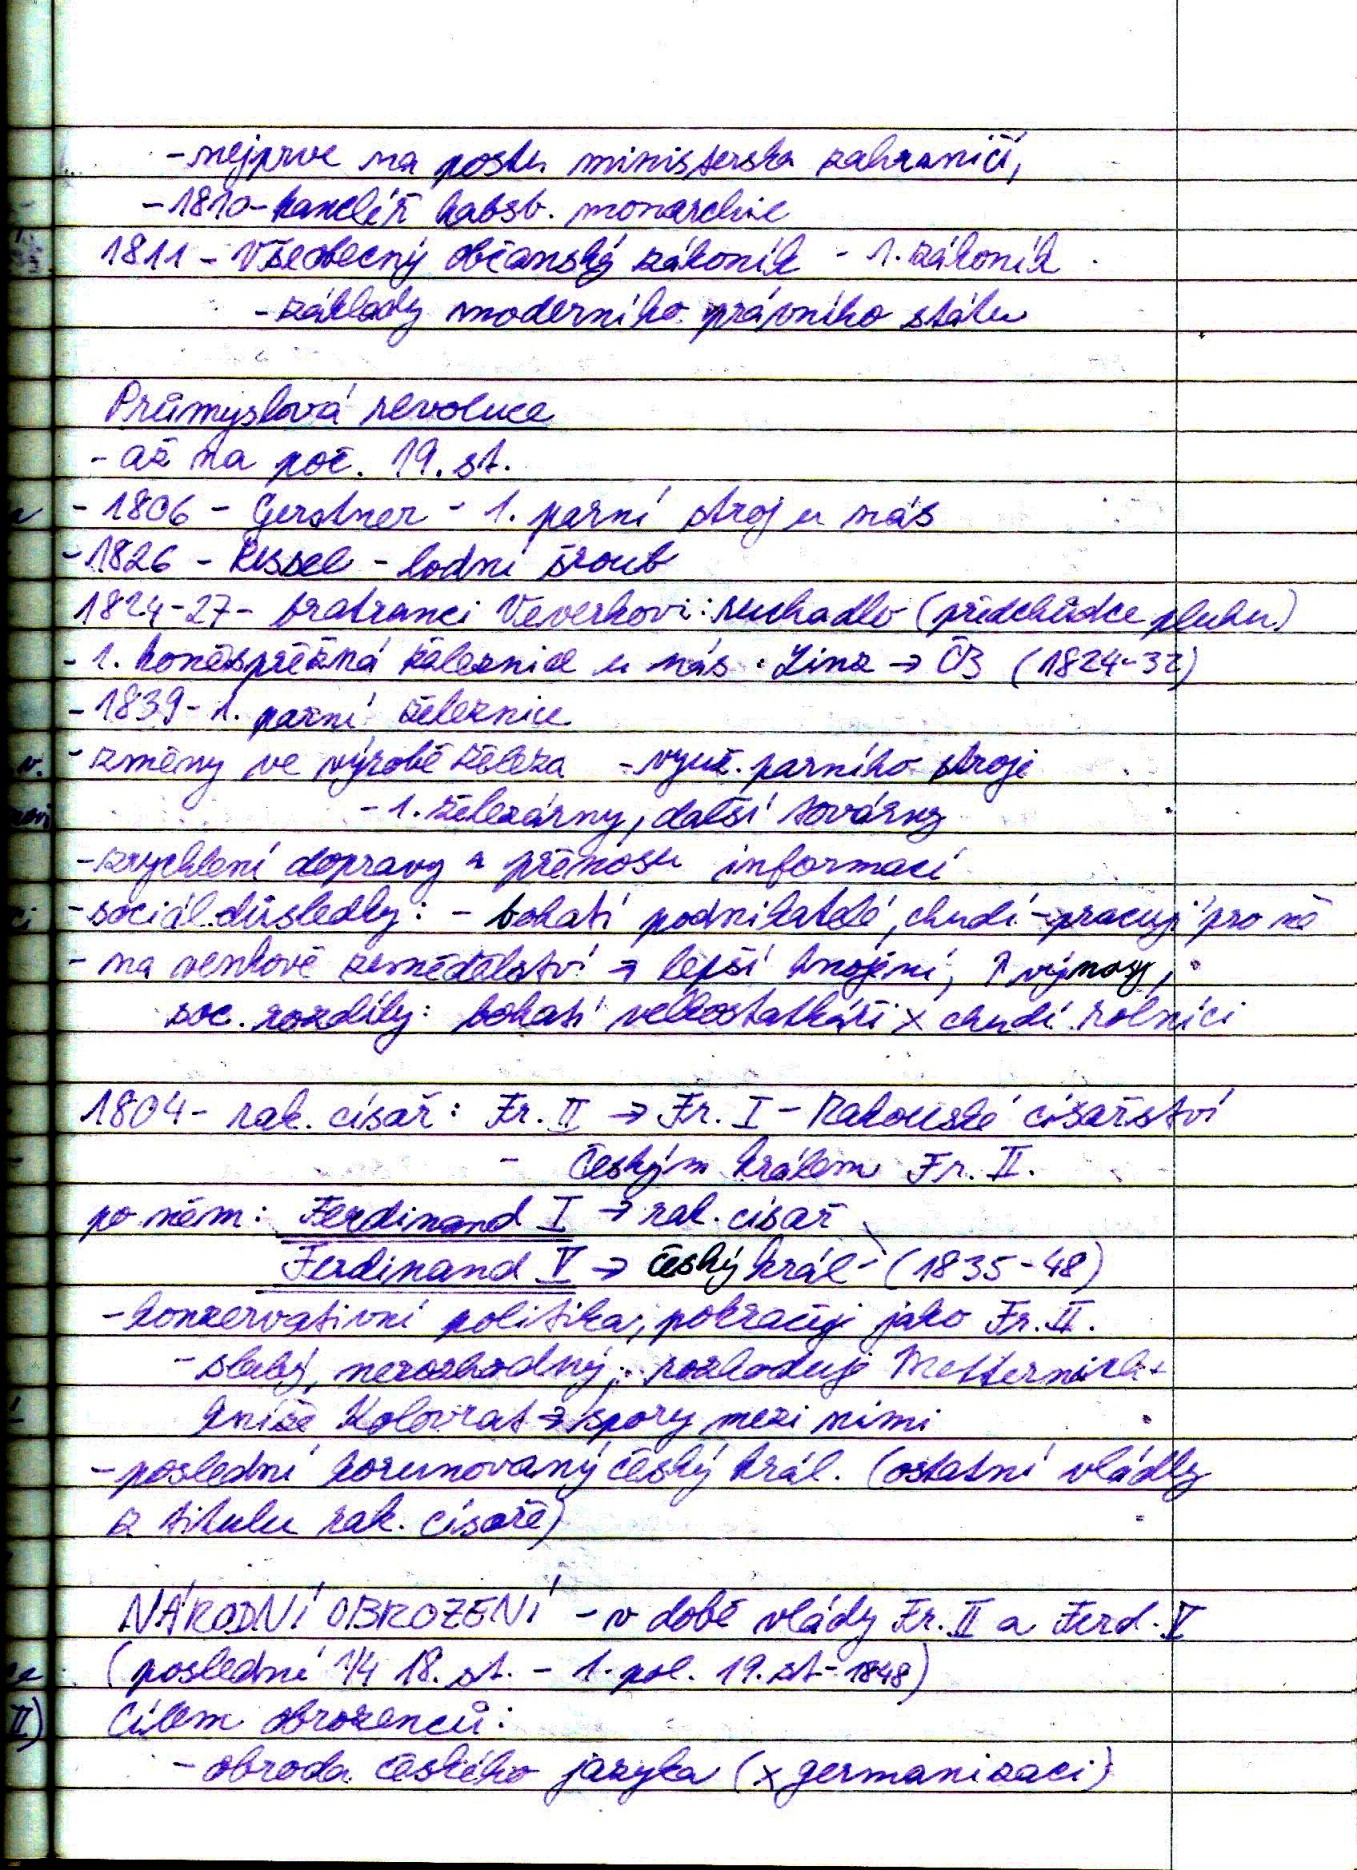 - nejprve na postu ministerska zahraničí,
- 1810 - kancléř habsb. monarchie
1811 - Všeobecný občanský zákoník - 1. zákoník
- základy moderního právního státu
Průmyslová revoluce
- až na poč. 19. st.
- 1806 - Gerstner - 1. parní stroj u nás
- 1826 - Ressel - lodní šroub
1824-27 - bratranci Veverkovi: ruchadlo (předchůdce pluhu)
- 1. koněspřežná železnice u nás · Linz → ČB (1824-32)
- 1839 - 1. parní železnice
- změny ve výrobě železa - využ. parního stroje
- 1. železárny, další továrny
- zrychlení dopravy a přenosu informací
- sociál. důsledky: - bohatí podnikatelé, chudí - pracují pro ně
- na venkově zemědělství → lepší hnojení, ↑ výnosy,
soc. rozdíly: bohatí velkostatkáři x chudí rolníci
1804 - rak. císař: Fr. II → Fr. I - Rakouské císařství
- českým králem Fr. II.
po něm: Ferdinand I → rak. císař
Ferdinand V → český král - (1835-48)
- konzervativní politika, pokračuje jako Fr. II.
- slabý, nerozhodný, rozhoduje Metternich +
kníže Kolovrat → spory mezi nimi
- poslední korunovaný český král. (ostatní vládly
z titulu rak. císaře)
NÁRODNÍ OBROZENÍ - v době vlády Fr. II a Ferd. V
(poslední 1/4 18. st. - 1. pol. 19. st - 1848)
Cílem obrozenců:
- obroda českého jazyka (x germanizaci)